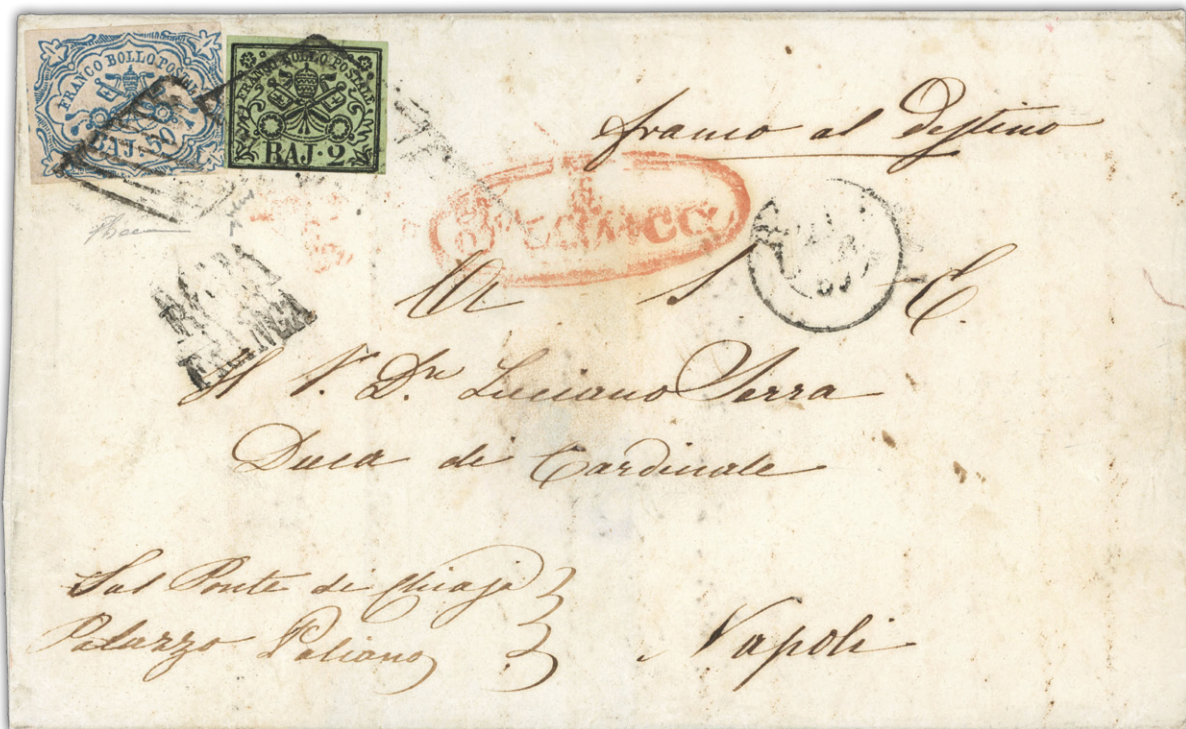 FRANCO BOLLO POSTALE
BAJ. 50
FRANCO BOLLO POSTALE
BAJ. 2
franco al Destino
FRANCA
A S. E.
Il S. Dn Luciano Serra
Duca di Cardinale
Sul Ponte di Chiaja
Palazzo Paliano
Napoli